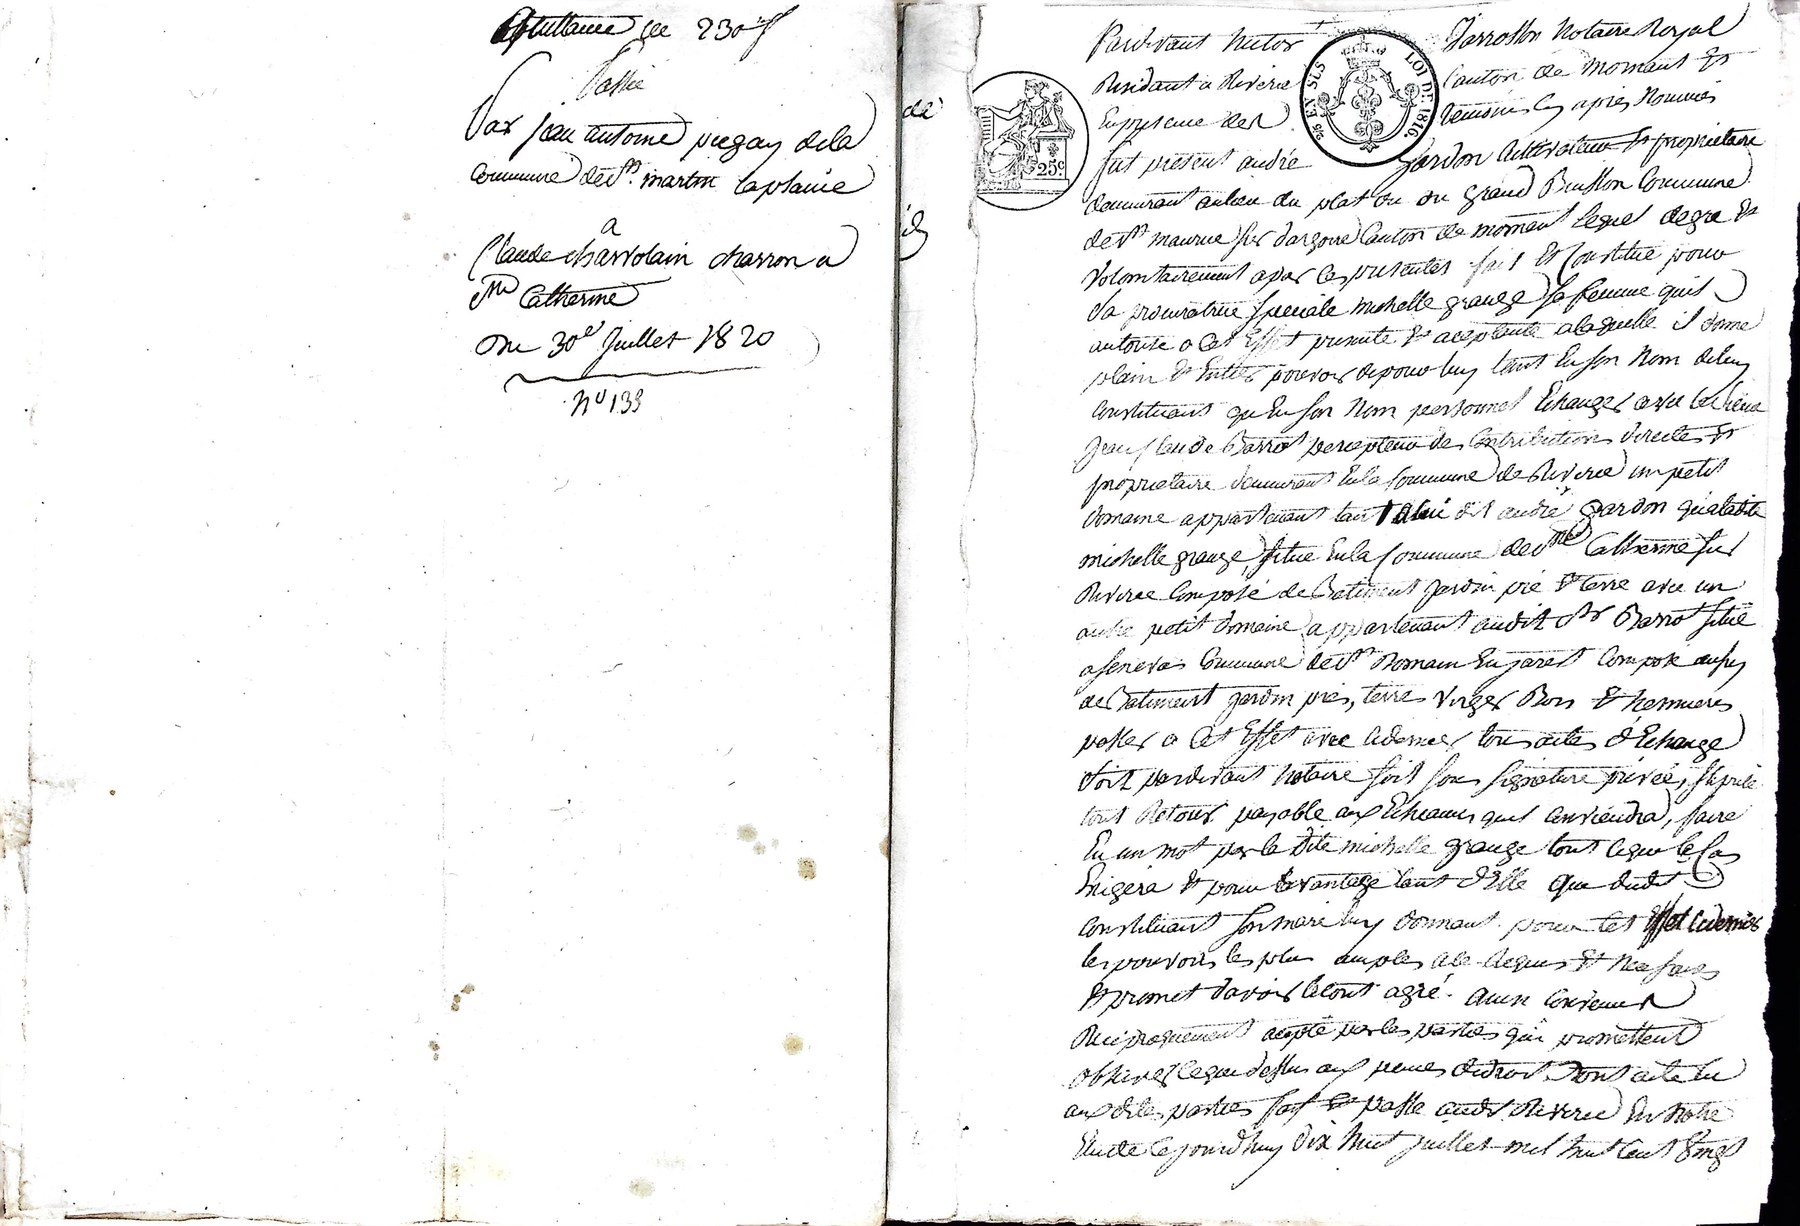 quittance de 230 f
Passée
Par jean antoine piegay de la
Commune de St. martin la plaine
a
Claude charvolain charron a
Ste Catherine
Du 30e Juillet 1820
No 133
de
Pardevant victor Jarrosson Notaire Royal
Residant a Riverie Canton de Mornant Et
En presence des temoins cy apres Nommés
fut present andré Jardon Cultivateur & proprietaire
demeurant au lieu du plat ou du grand Buisson Commune
de St maurice sur dargoire Canton de mornant lequel de gre &
volontairement a par ces presentes fait & Constitue pour
Sa procuratrice speciale michelle grange sa femme qu'il
autorise a cet Effet presente & aceptante a laquelle il donne
plain & Entier pouvoir de pour luy tant En son Nom de luy
Constituant qu'En son Nom personnel Echanger avec le sieur
Jean Claude Barrot percepteur des Contributions directes &
proprietaire demeurant En la Commune de Riverie un petit
domaine appartenant tant a lui dit andré jardon qu'a ladite
michelle grange situé En la Commune de Ste Catherine sur
Riverie Composé de Batiment jardin pré & terre avec un
autre petit domaine appartenant audit Sr Barrot situé
a senevas Commune de St Romain En jarest Composé aussy
de Batiment jardin prés, terres verger Bois & hermures
passer a cet Effet avec ce dernier tous actes d'Echange
Soit pardevant Notaire soit sous signature privée, stipuler
tout Retour payable aux Echeances quil conviendra, faire
En un mot par la dite michelle grange tout ce que le Cas
Exigera & pour lavantage tant d'Elle que dudit
Constituant son mari luy donnant pour cet Effet ce dernier
les pouvoirs les plus amples a ce Requis & Necessaires
& promet d'avoir le tout agré. ainsi Convenu &
Reciproquement accepté par les parties qui promettent
observer ce que dessus aux peines de droit. Dont acte lu
aux dites parties fait & passé audit Riverie En notre
Etude Cejourdhuy Dix huit juillet mil huit Cent vingt
25 EN SUS
LOI DE 1816.
25c